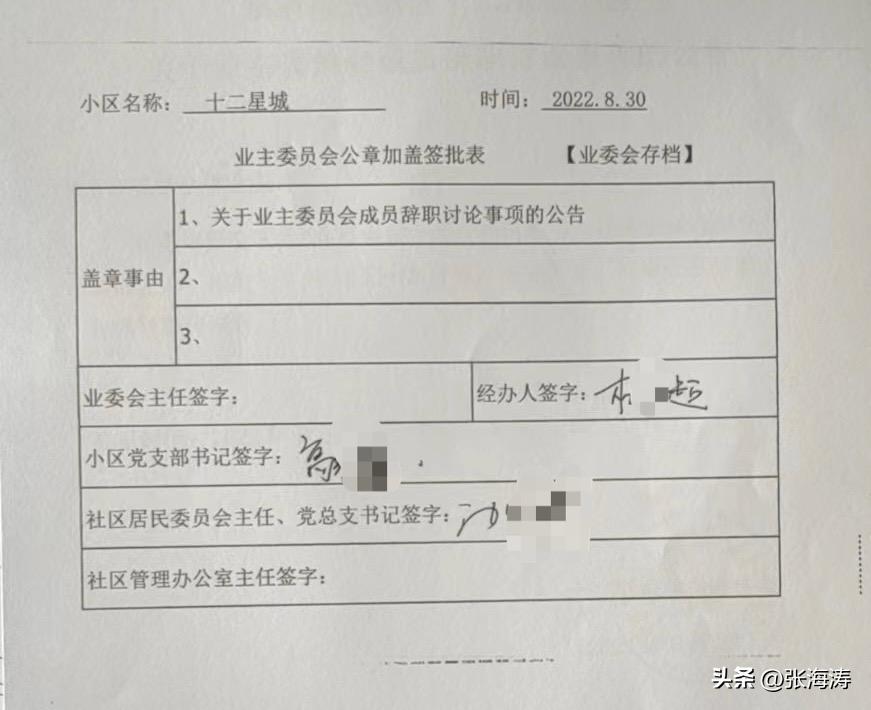 小区名称： 十二星城 时间： 2022.8.30
业主委员会公章加盖签批表 【业委会存档】
盖章事由
1、关于业主委员会成员辞职讨论事项的公告
2、
3、
业委会主任签字： 经办人签字：
小区党支部书记签字：
社区居民委员会主任、党总支书记签字：
社区管理办公室主任签字：
头条 @张海涛